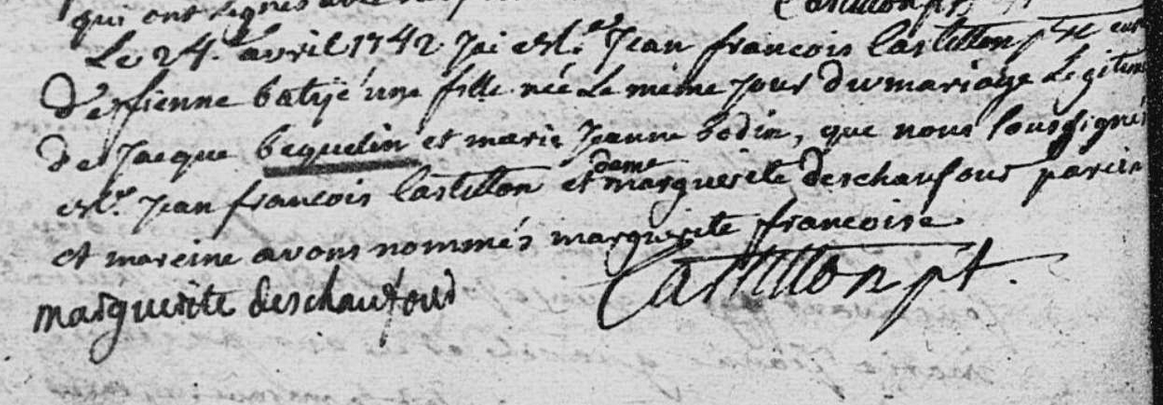 qui ont signés
Castillon pt
Le 24. avril 1742 Jai Jean francois Castillon ptre curé
d'esfienne batisé une fille née Le même jour du mariage Legitime
de Jacque bequelin et marie Jeanne bodin, que nous soussignés
Jean francois Castillon et dame marguerite deschaufour parein
et mareine avons nommés marguerite francoise
marguerite deschaufour Castillon pt.